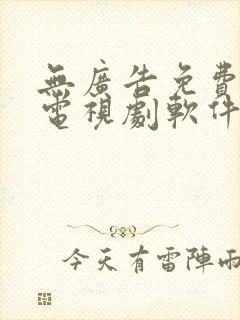 無廣告免費
電視劇軟件
今天有雷陣雨